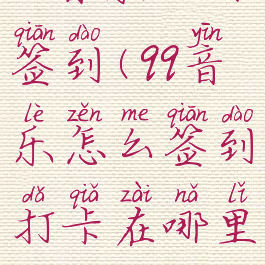 qiān dào yīn
签到(99音
lè zěn me qiān dào
乐怎么签到
dǎ qiǎ zài nǎ lǐ
打卡在哪里